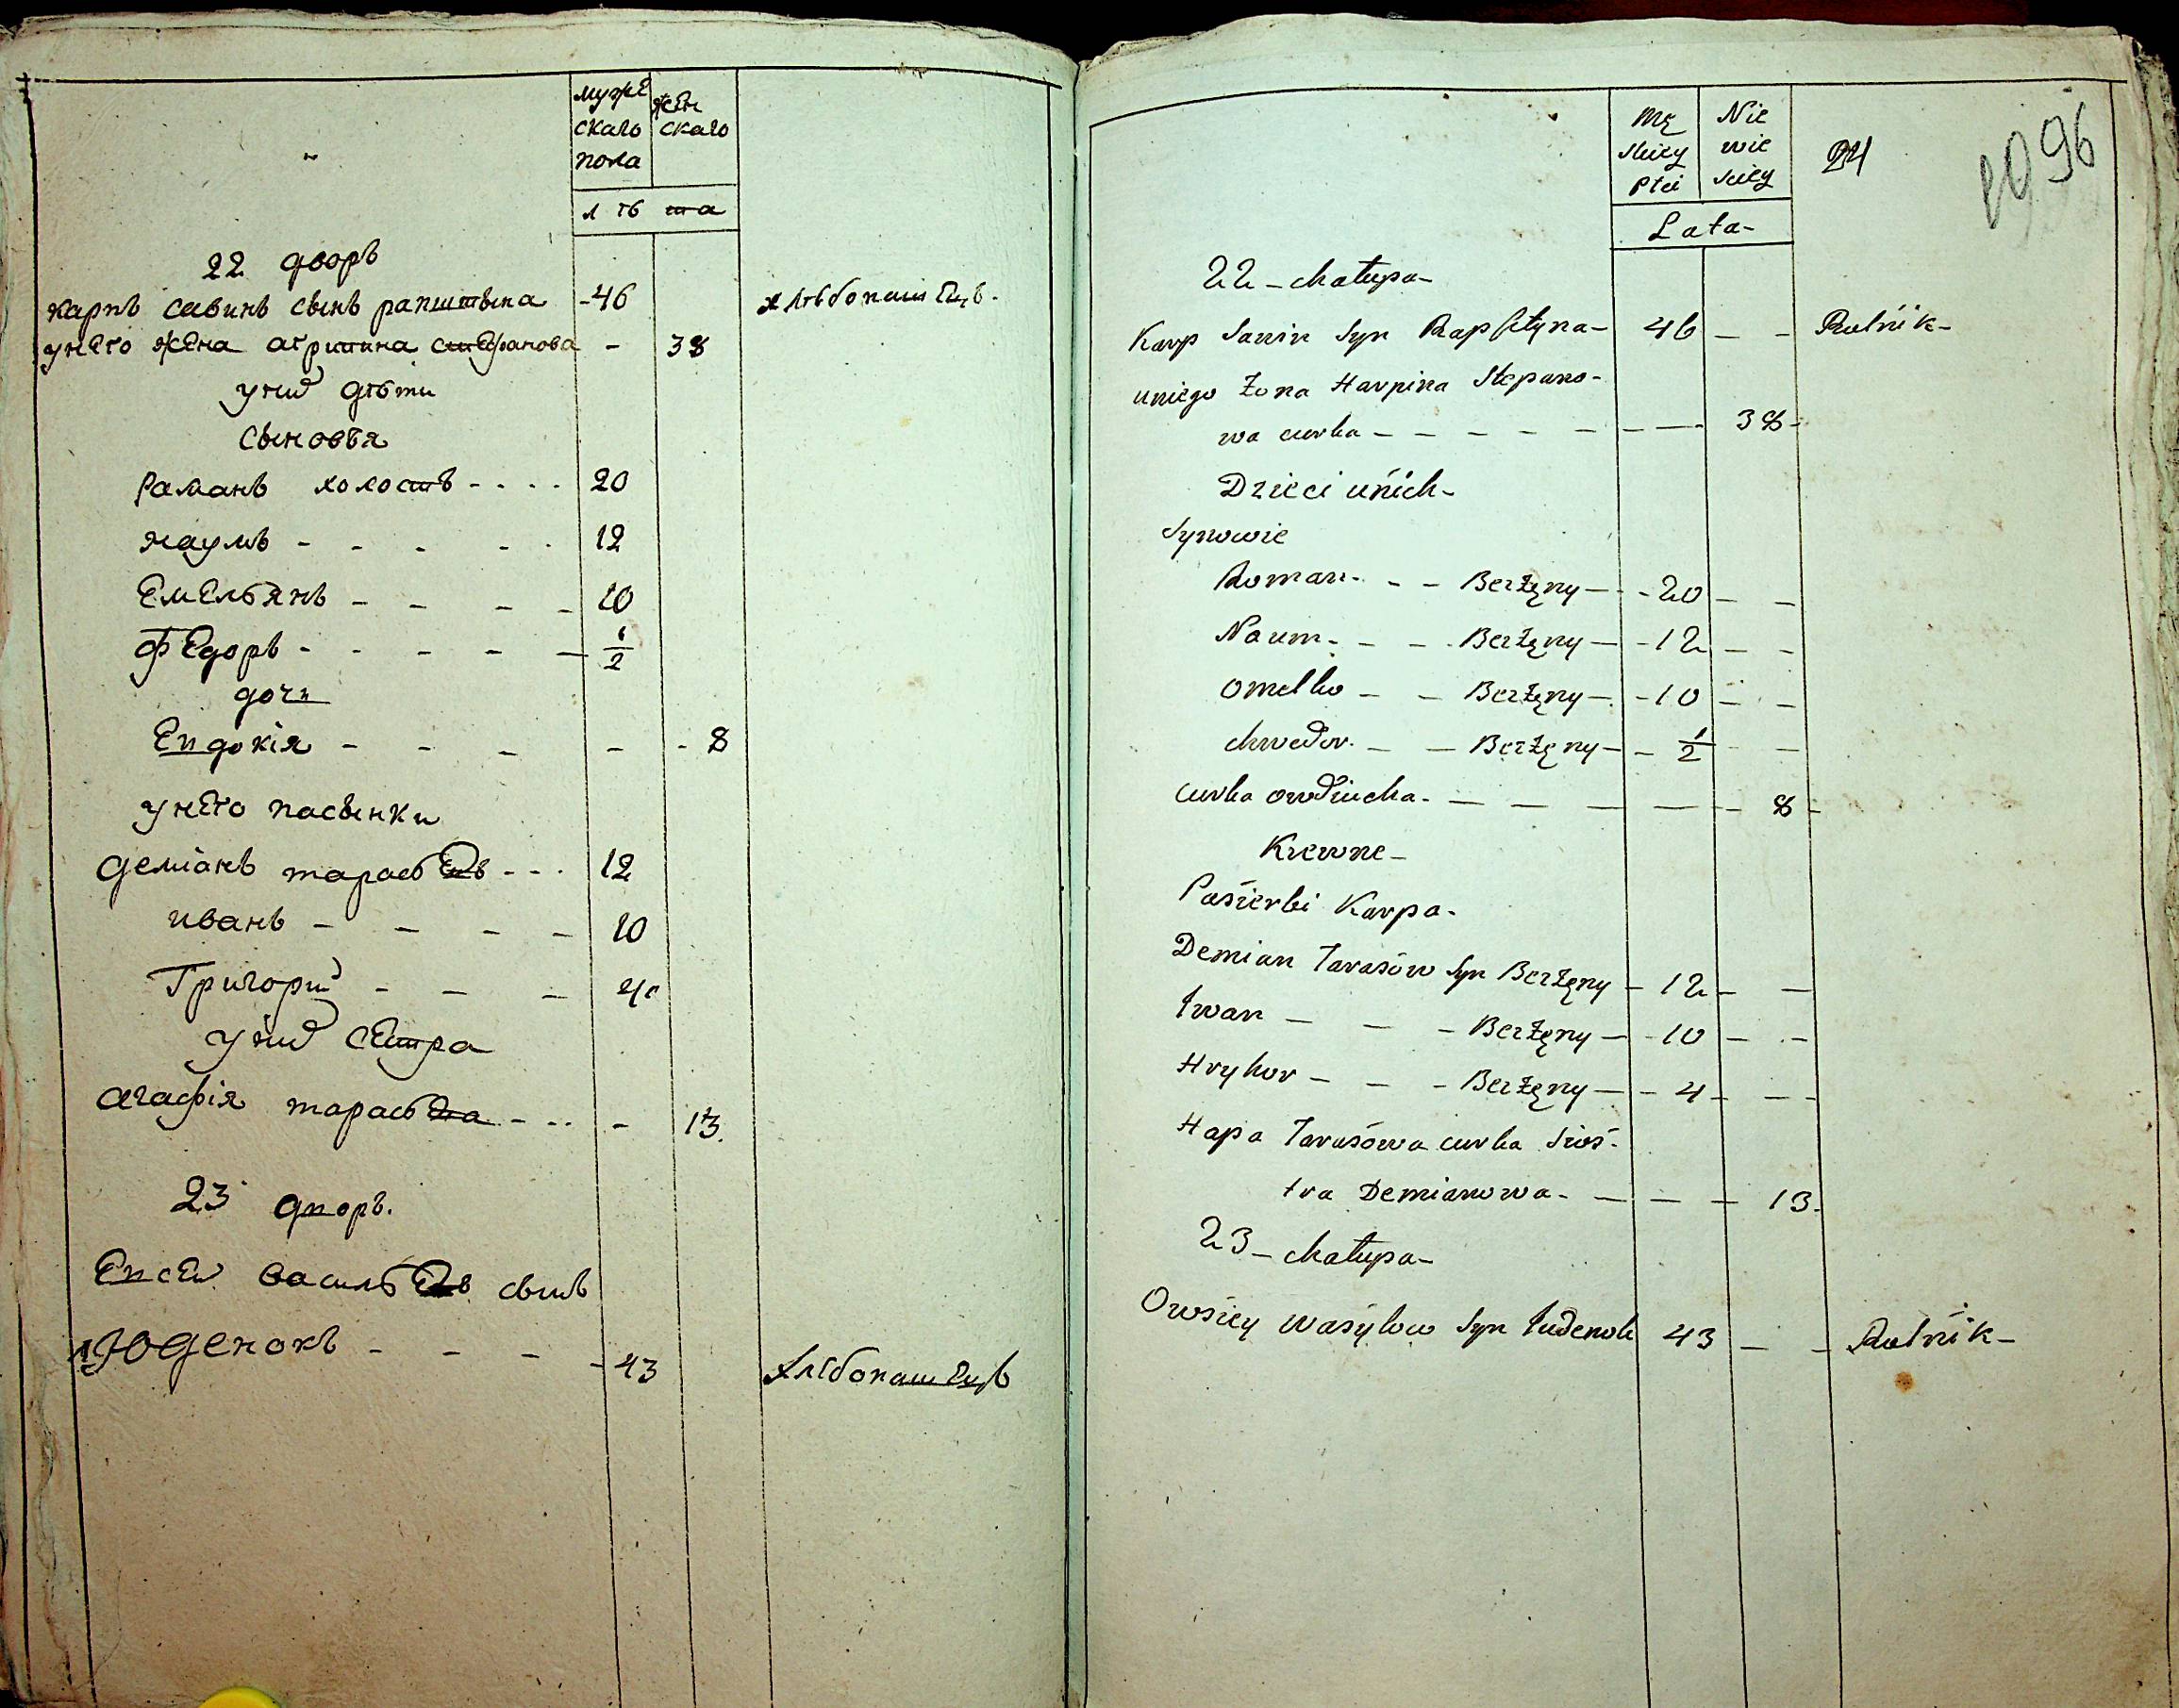 муже
скаго
пола
жен
скаго
лѣта
22 дворъ
карпъ савинъ сынъ рапштына -46 хлѣбопашецъ.
унего жена агрипина стефанова - 38
унихъ дѣти
сыновья
Раманъ холостъ - - - - 20
наумъ - - - - - 12
Емельянъ - - - - 10
Федоръ - - - - - 1/2
дочи
Евдокія - - - - - 8
унего пасынки
деміанъ тарасьевъ - - - 12
иванъ - - - - 10
Григорий - - - 4
унихъ сестра
агафія тарасьева - - - - 13.
23 дворъ.
Евсей васильевъ сынъ
юденокъ - - - - 43 хлебопашецъ
Mę
skiey
Płci
Nie
wie
sciey
24
1096
Lata-
22 - chałupa-
Karp Sawin Syn Rapsztyna- 46 - - Rolnik-
uniego żona Harpina Stepano-
wa curka - - - - - - - 38-
Dzieci unich-
Synowie
Roman. - - Bezżęny - - 20 - -
Naum - - - Bezżęny - - 12 - -
Omelko - - Bezżęny - - 10 - -
Chwedor. - - Bezżęny - - 1/2 -
curka owdiucha. - - - - - 8 -
Krewne-
Pasierbi Karpa-
Demian Tarasów Syn Bezżęny - 12 - -
Iwan - - - Bezżęny - - 10 - -
Hryhor - - - Bezżęny - - 4 - - -
Hapa Tarasowa curka Sios-
tra Demianowa - - - - 13.
23 - chałupa-
Owsiey Wasylow Syn Judenok 43 - - Rolnik-